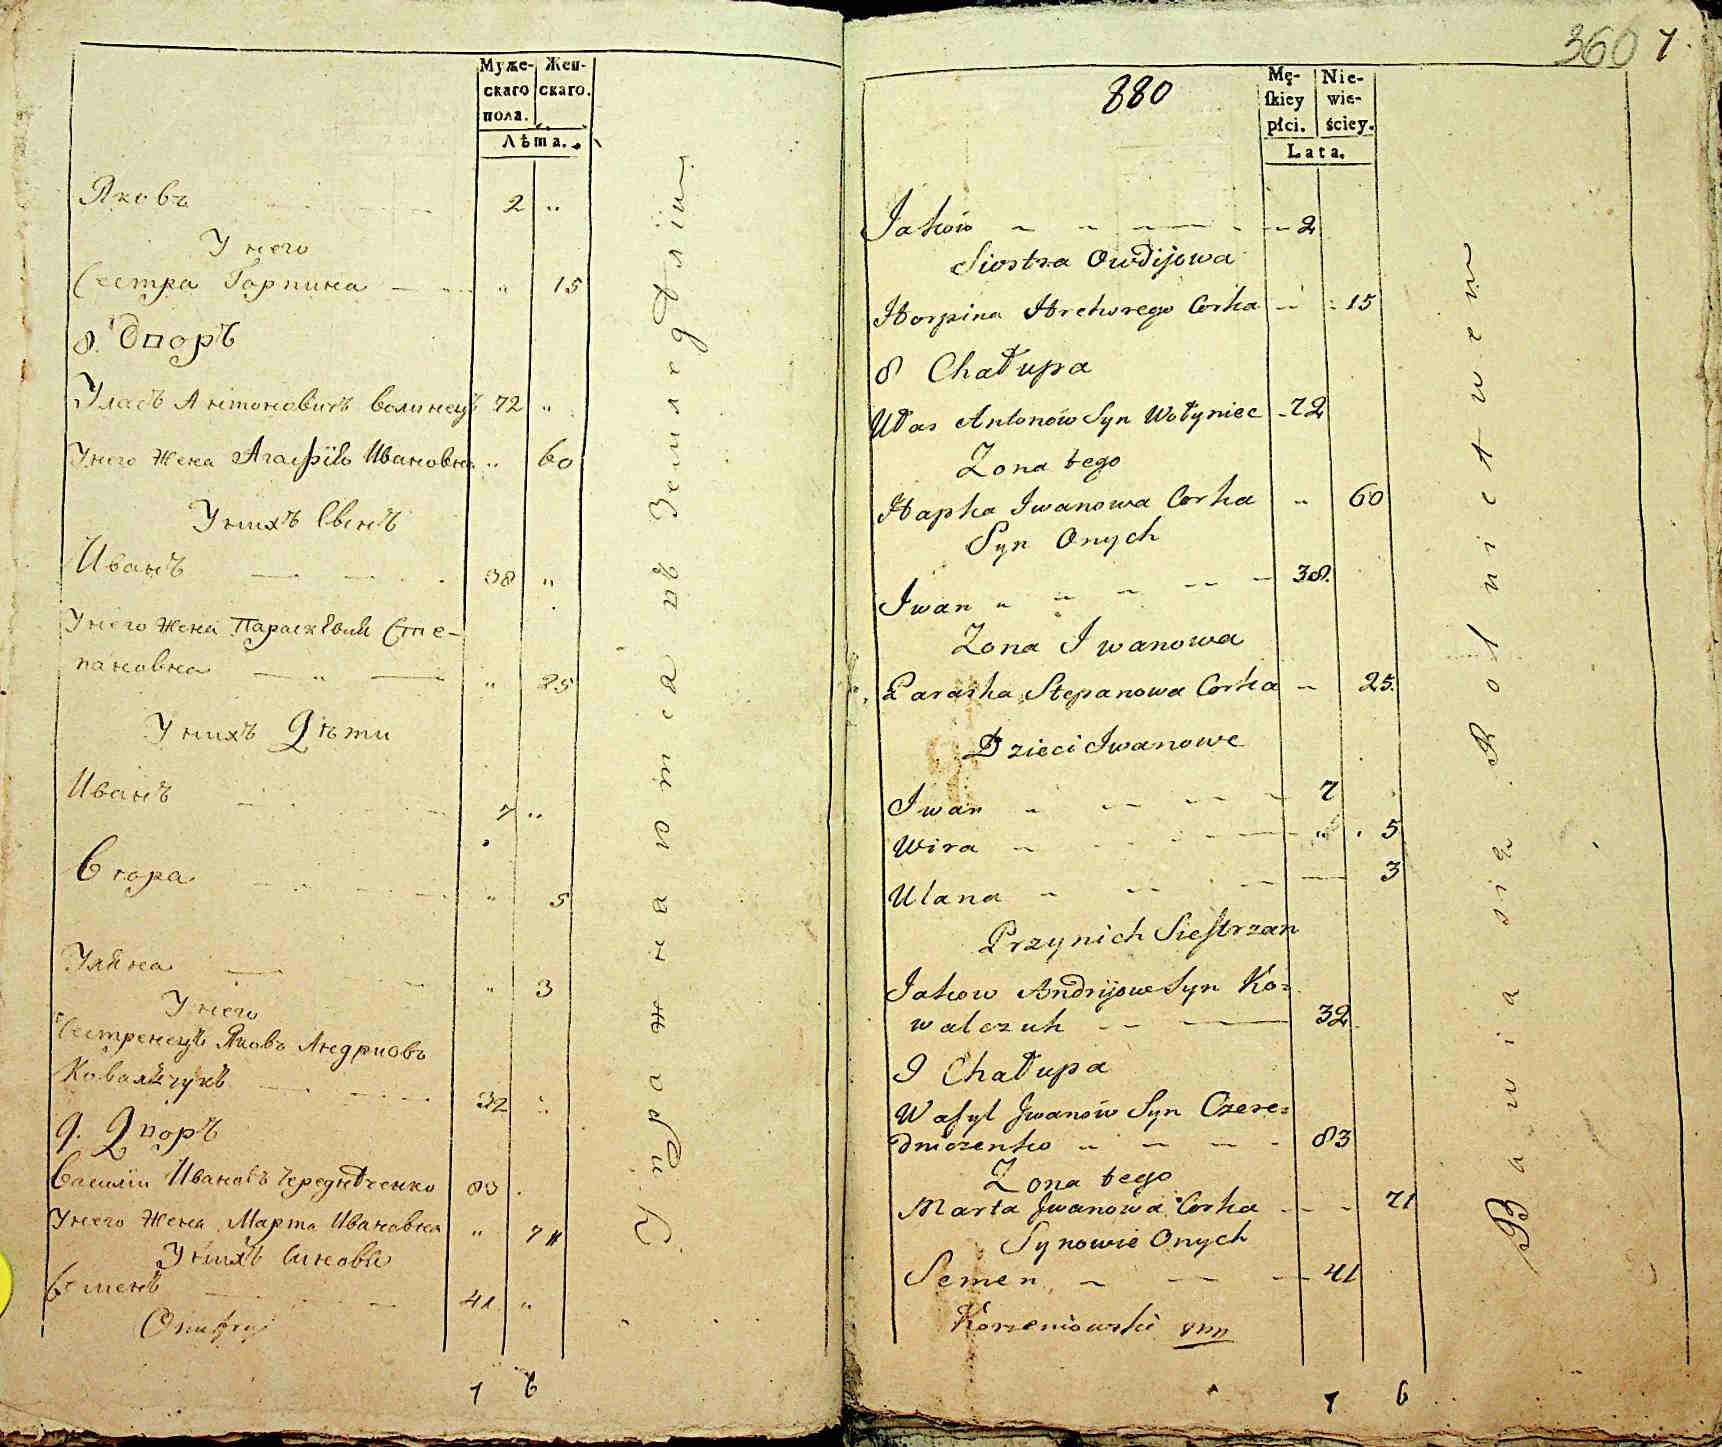 Муже-
скаго
пола.
Жен-
скаго.
Лѣта.
Яковъ 2 „
У него
Сестра Горпина „ 15
8. Дворъ
Уласъ Антоновичъ Волинецъ 72 „
У него Жена Агафія Ивановна „ 60
У нихъ Синъ
Иванъ 38 „
У него Жена Параскѣвия Сте-
пановна „ 25
У нихъ Дѣти
Иванъ 7 „
Вѣра „ 5
Уляна „ 3
У него
Сестренецъ Яковъ Андриовъ
Ковальчукъ 32 „
9. Дворъ
Василій Ивановъ Чередниченко 83
У него Жена Марта Ивановна „ 71
У нихъ Синовья
Семенъ 41 „
7 6
Упражнаются въ Земледѣліи
360 7
880
Mę-
skiey
płci.
Nie-
wie-
ściey.
Lata.
Jakow 2
Siostra Owdijowa
Horpina Corka 15
8 Chałupa
Ułas Antonów Syn Wołyniec 72
Zona tego
Hapka Iwanowa Corka „ 60
Syn Onych
Iwan 38.
Zona Iwanowa
Paraska Stepanowa Corka 25.
Dzieci Iwanowe
Iwan 7
Wira „ 5
Ulana 3
Przy nich Siestrzan
Jakow Andrijow Syn Ko=
walczuk 32
9 Chałupa
Wasyl Iwanów Syn Czere=
dniczenko 83
Zona tego
Marta Iwanowa Corka 71
Synowie Onych
Semen 41
Korzeniowski
7 6
Bawia się Rolnictwem